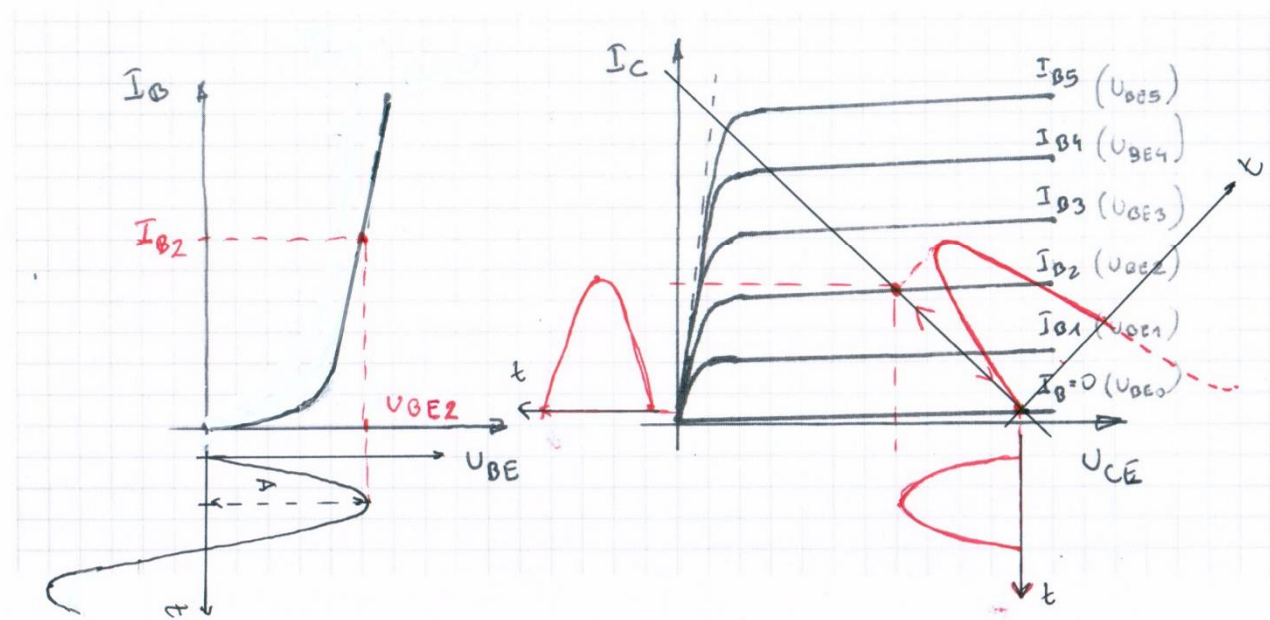 I_B
I_B2
U_BE2
U_BE
A
t
I_C
I_B5 (U_BE5)
I_B4 (U_BE4)
I_B3 (U_BE3)
I_B2 (U_BE2)
I_B1 (U_BE1)
I_B=0 (U_BE0)
t
t
U_CE
t